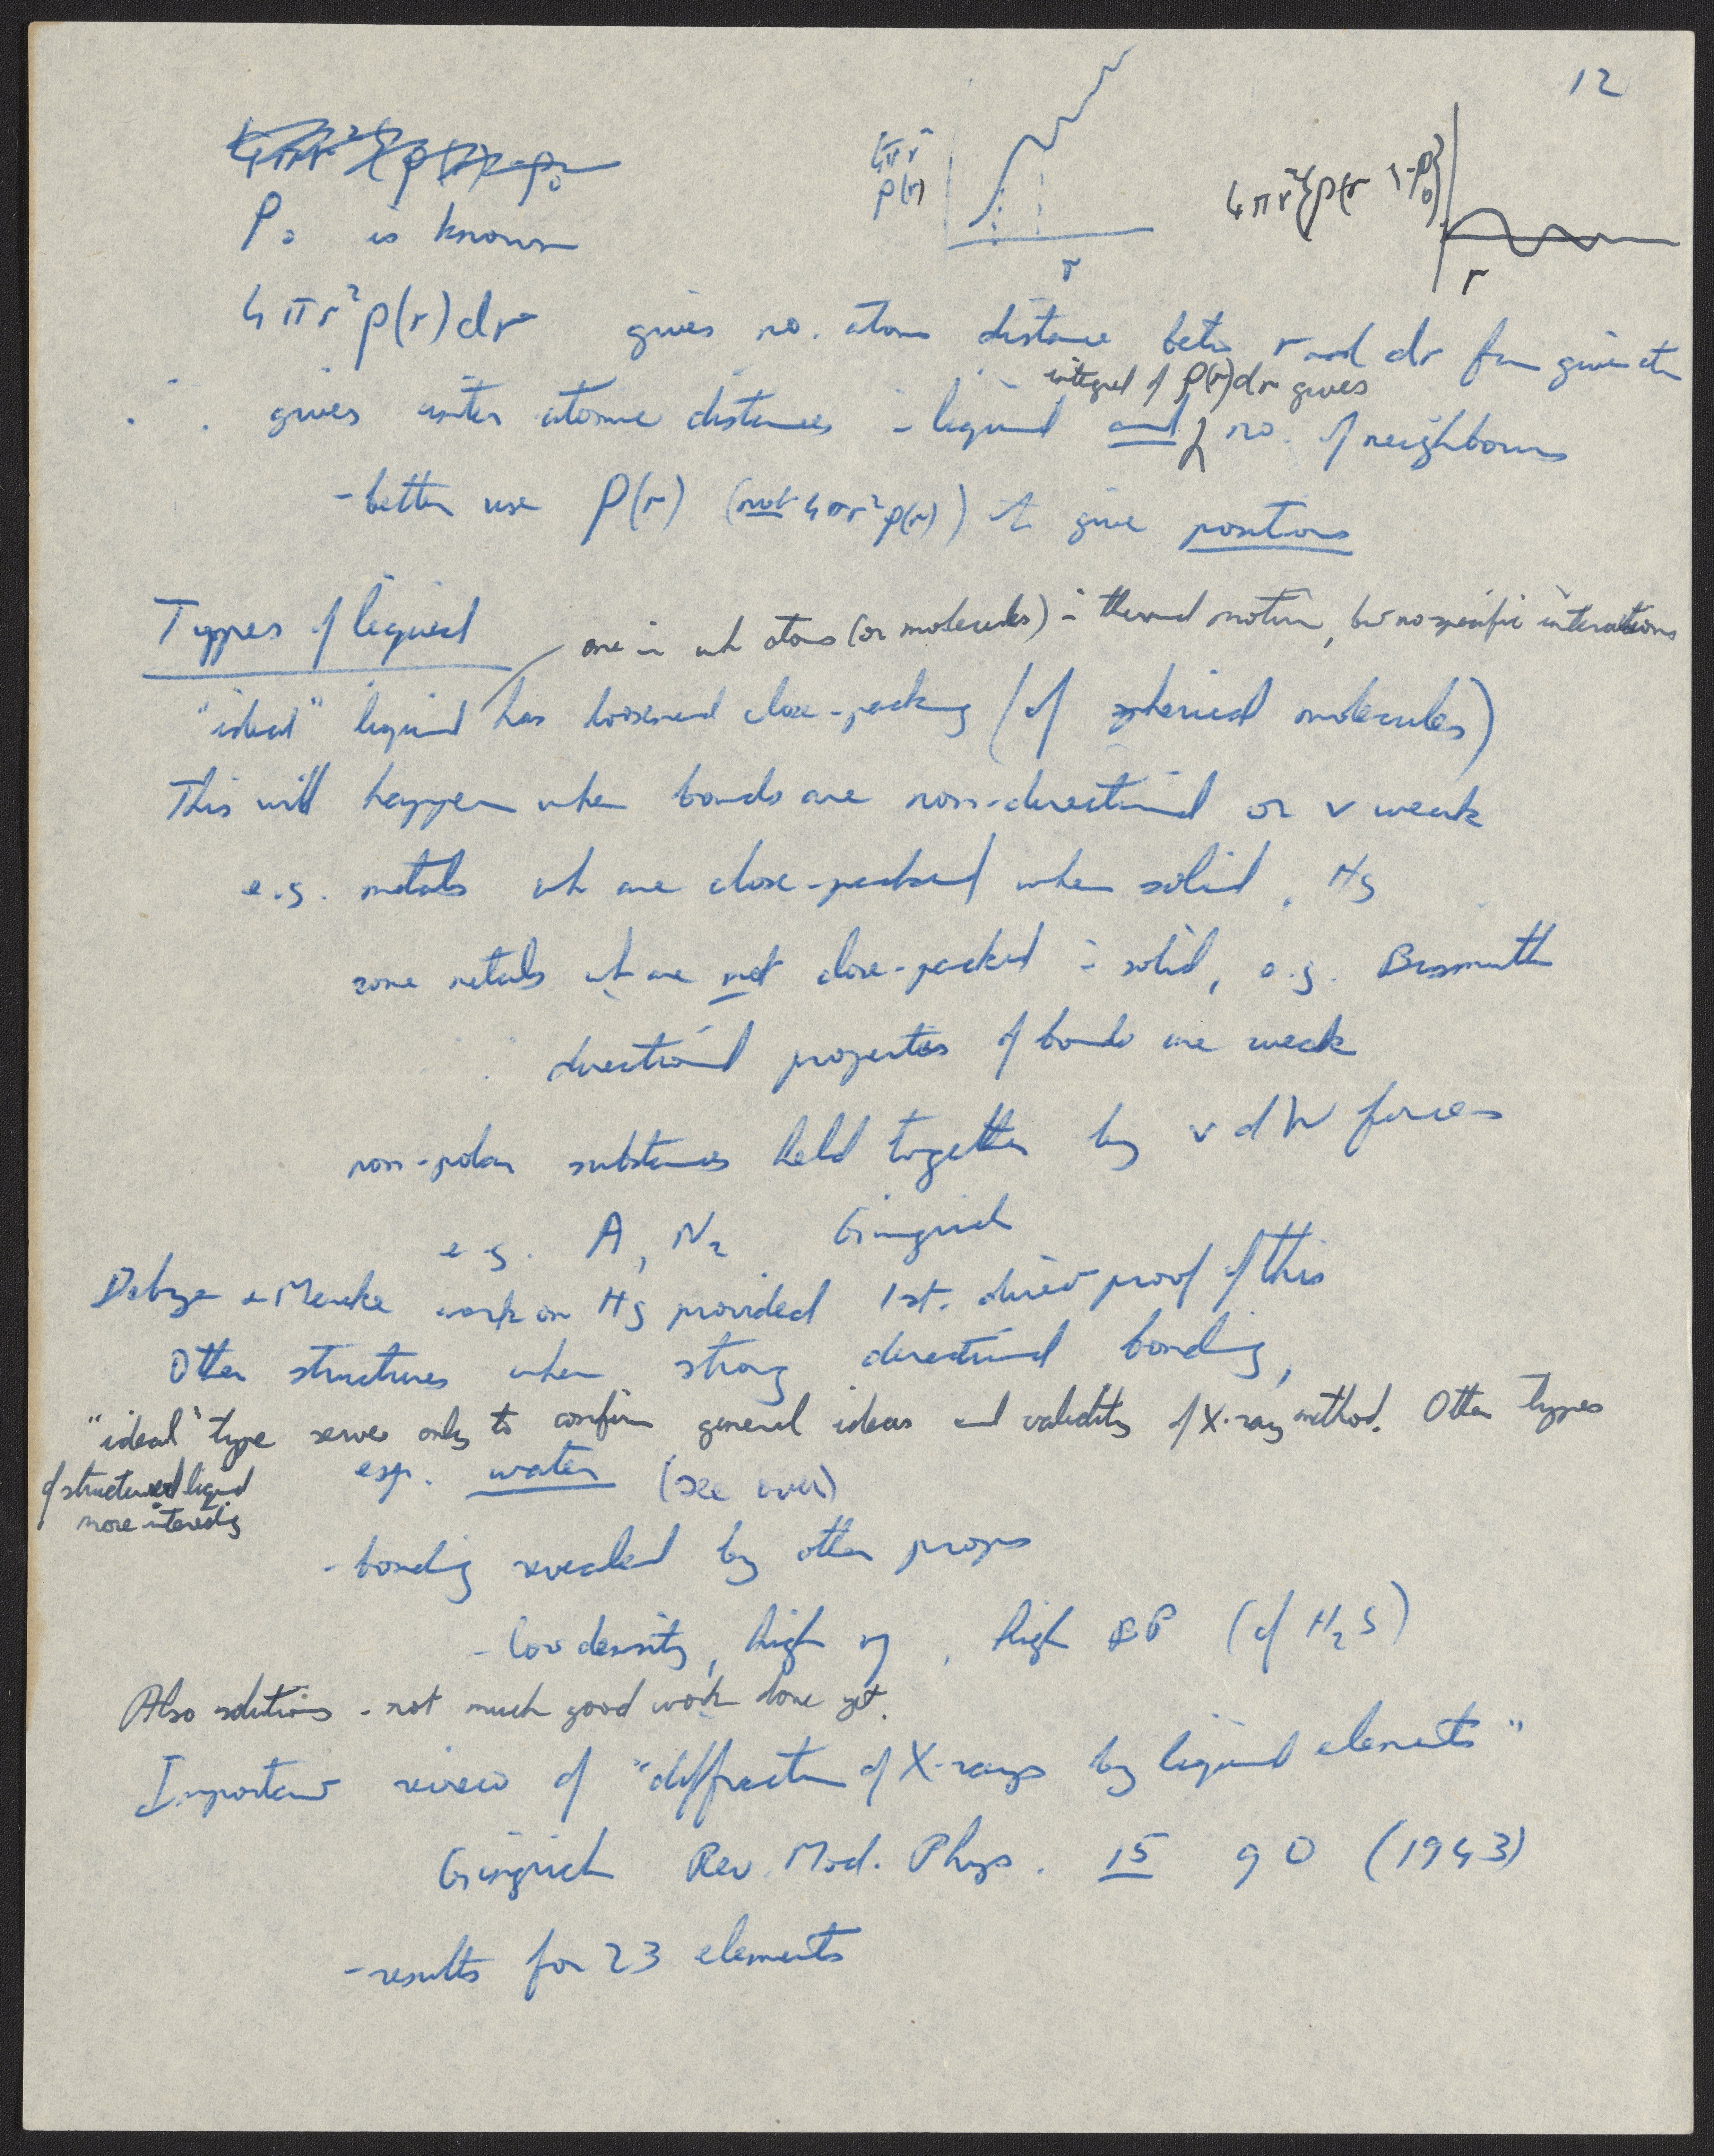 12
4πr²{ρ(r)-ρ₀
4πr²
ρ(r)
r
4πr²{ρ(r)-ρ₀}
r
ρ₀ is known
4πr²ρ(r)dr gives no. atoms distance betw r and dr from given atom
integral of ρ(r)dr gives
∴ gives inter atomic distances in liquid and no. of neighbours
- better use ρ(r) (not 4πr²ρ(r)) to give positions
Types of liquid
one in wh atoms (or molecules) in thermal motion, but no specific interactions
"ideal" liquid has loosened close-packing (of spherical molecules)
This will happen when bonds are non-directional or v weak
e.g. metals wh are close-packed when solid, Hg
some metals wh are not close-packed in solid, e.g. Bismuth
∴ directional properties of bonds are weak
non-polar substances held together by v d W forces
e.g. A, N₂ Gingrich
Debye + Menke work on Hg provided 1st. direct proof of this
Other structures when strong directional bonding,
"ideal" type serves only to confirm general ideas and validity of X-ray method. Other types
of structured liquid
more interesting
esp. water (see over)
- bonding revealed by other props
- low density, high η, high BP (cf H₂S)
Also solutions - not much good work done yet.
Important review of "diffraction of X-rays by liquid elements"
Gingrich Rev. Mod. Phys. 15 90 (1943)
- results for 23 elements